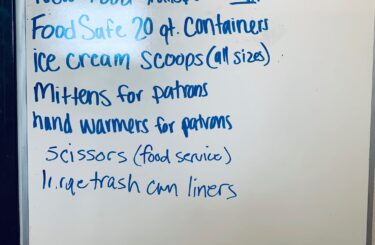 New Food
Food Safe 20 qt. Containers
ice cream scoops (all sizes)
Mittens for patrons
hand warmers for patrons
Scissors (food service)
large trash can liners